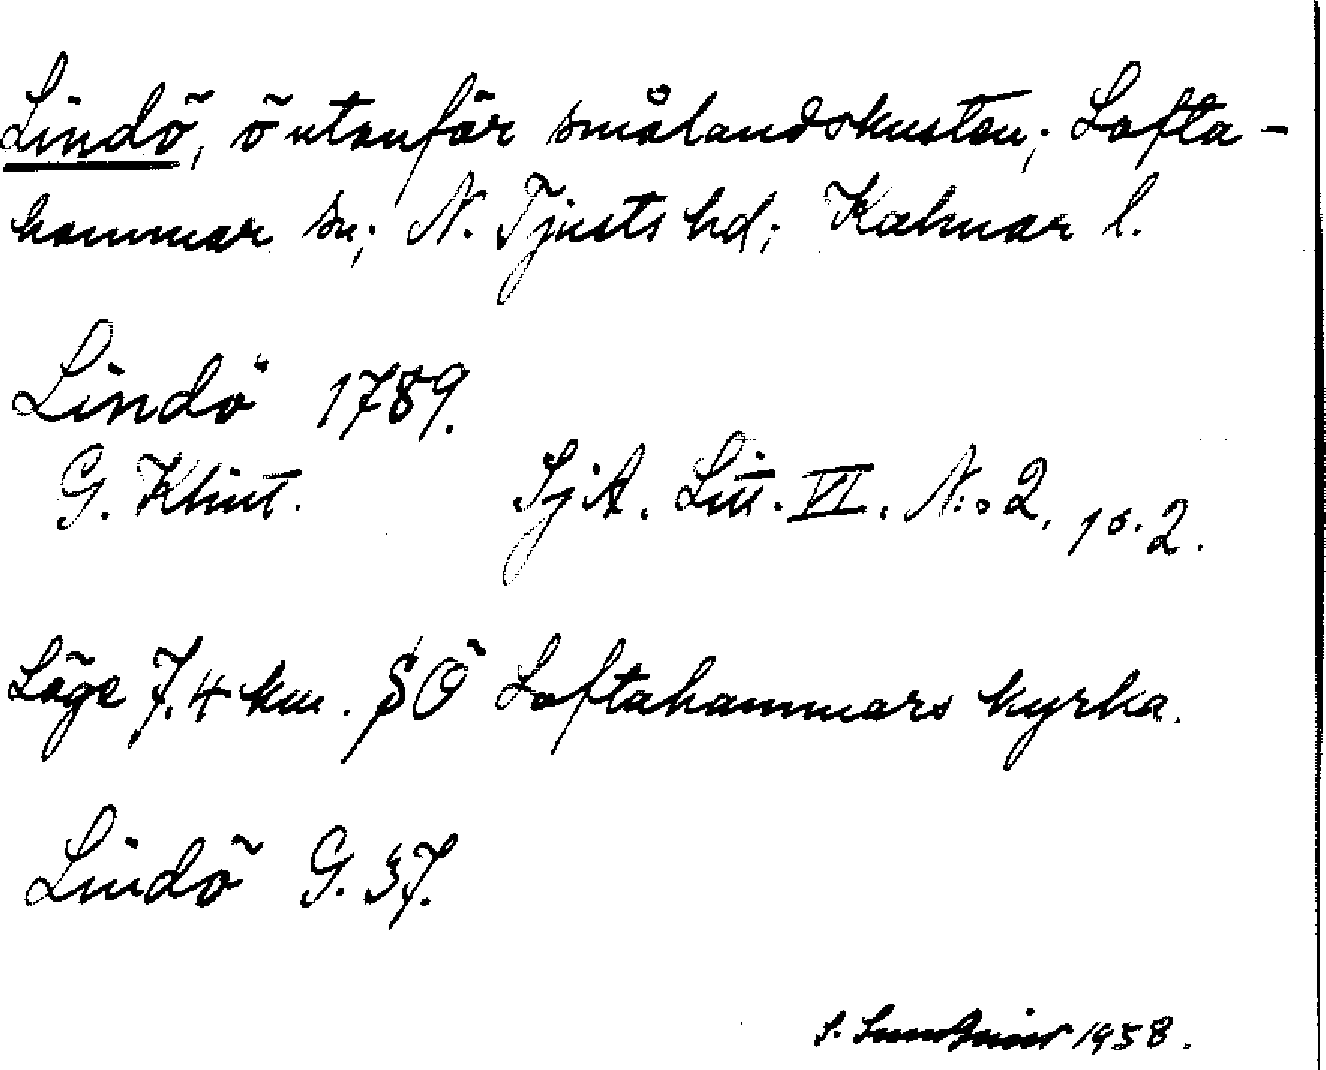 Lindö, ö utanför smålandskusten; Lofta-
hammar sn; N. Tjusts hd; Kalmar l.
Lindö 1789.
G. Klint. SjA. Litt. VI. N:o 2, p. 2.
Läge 7,4 km. SÖ Loftahammars kyrka.
Lindö G. 37.
S. 1958.